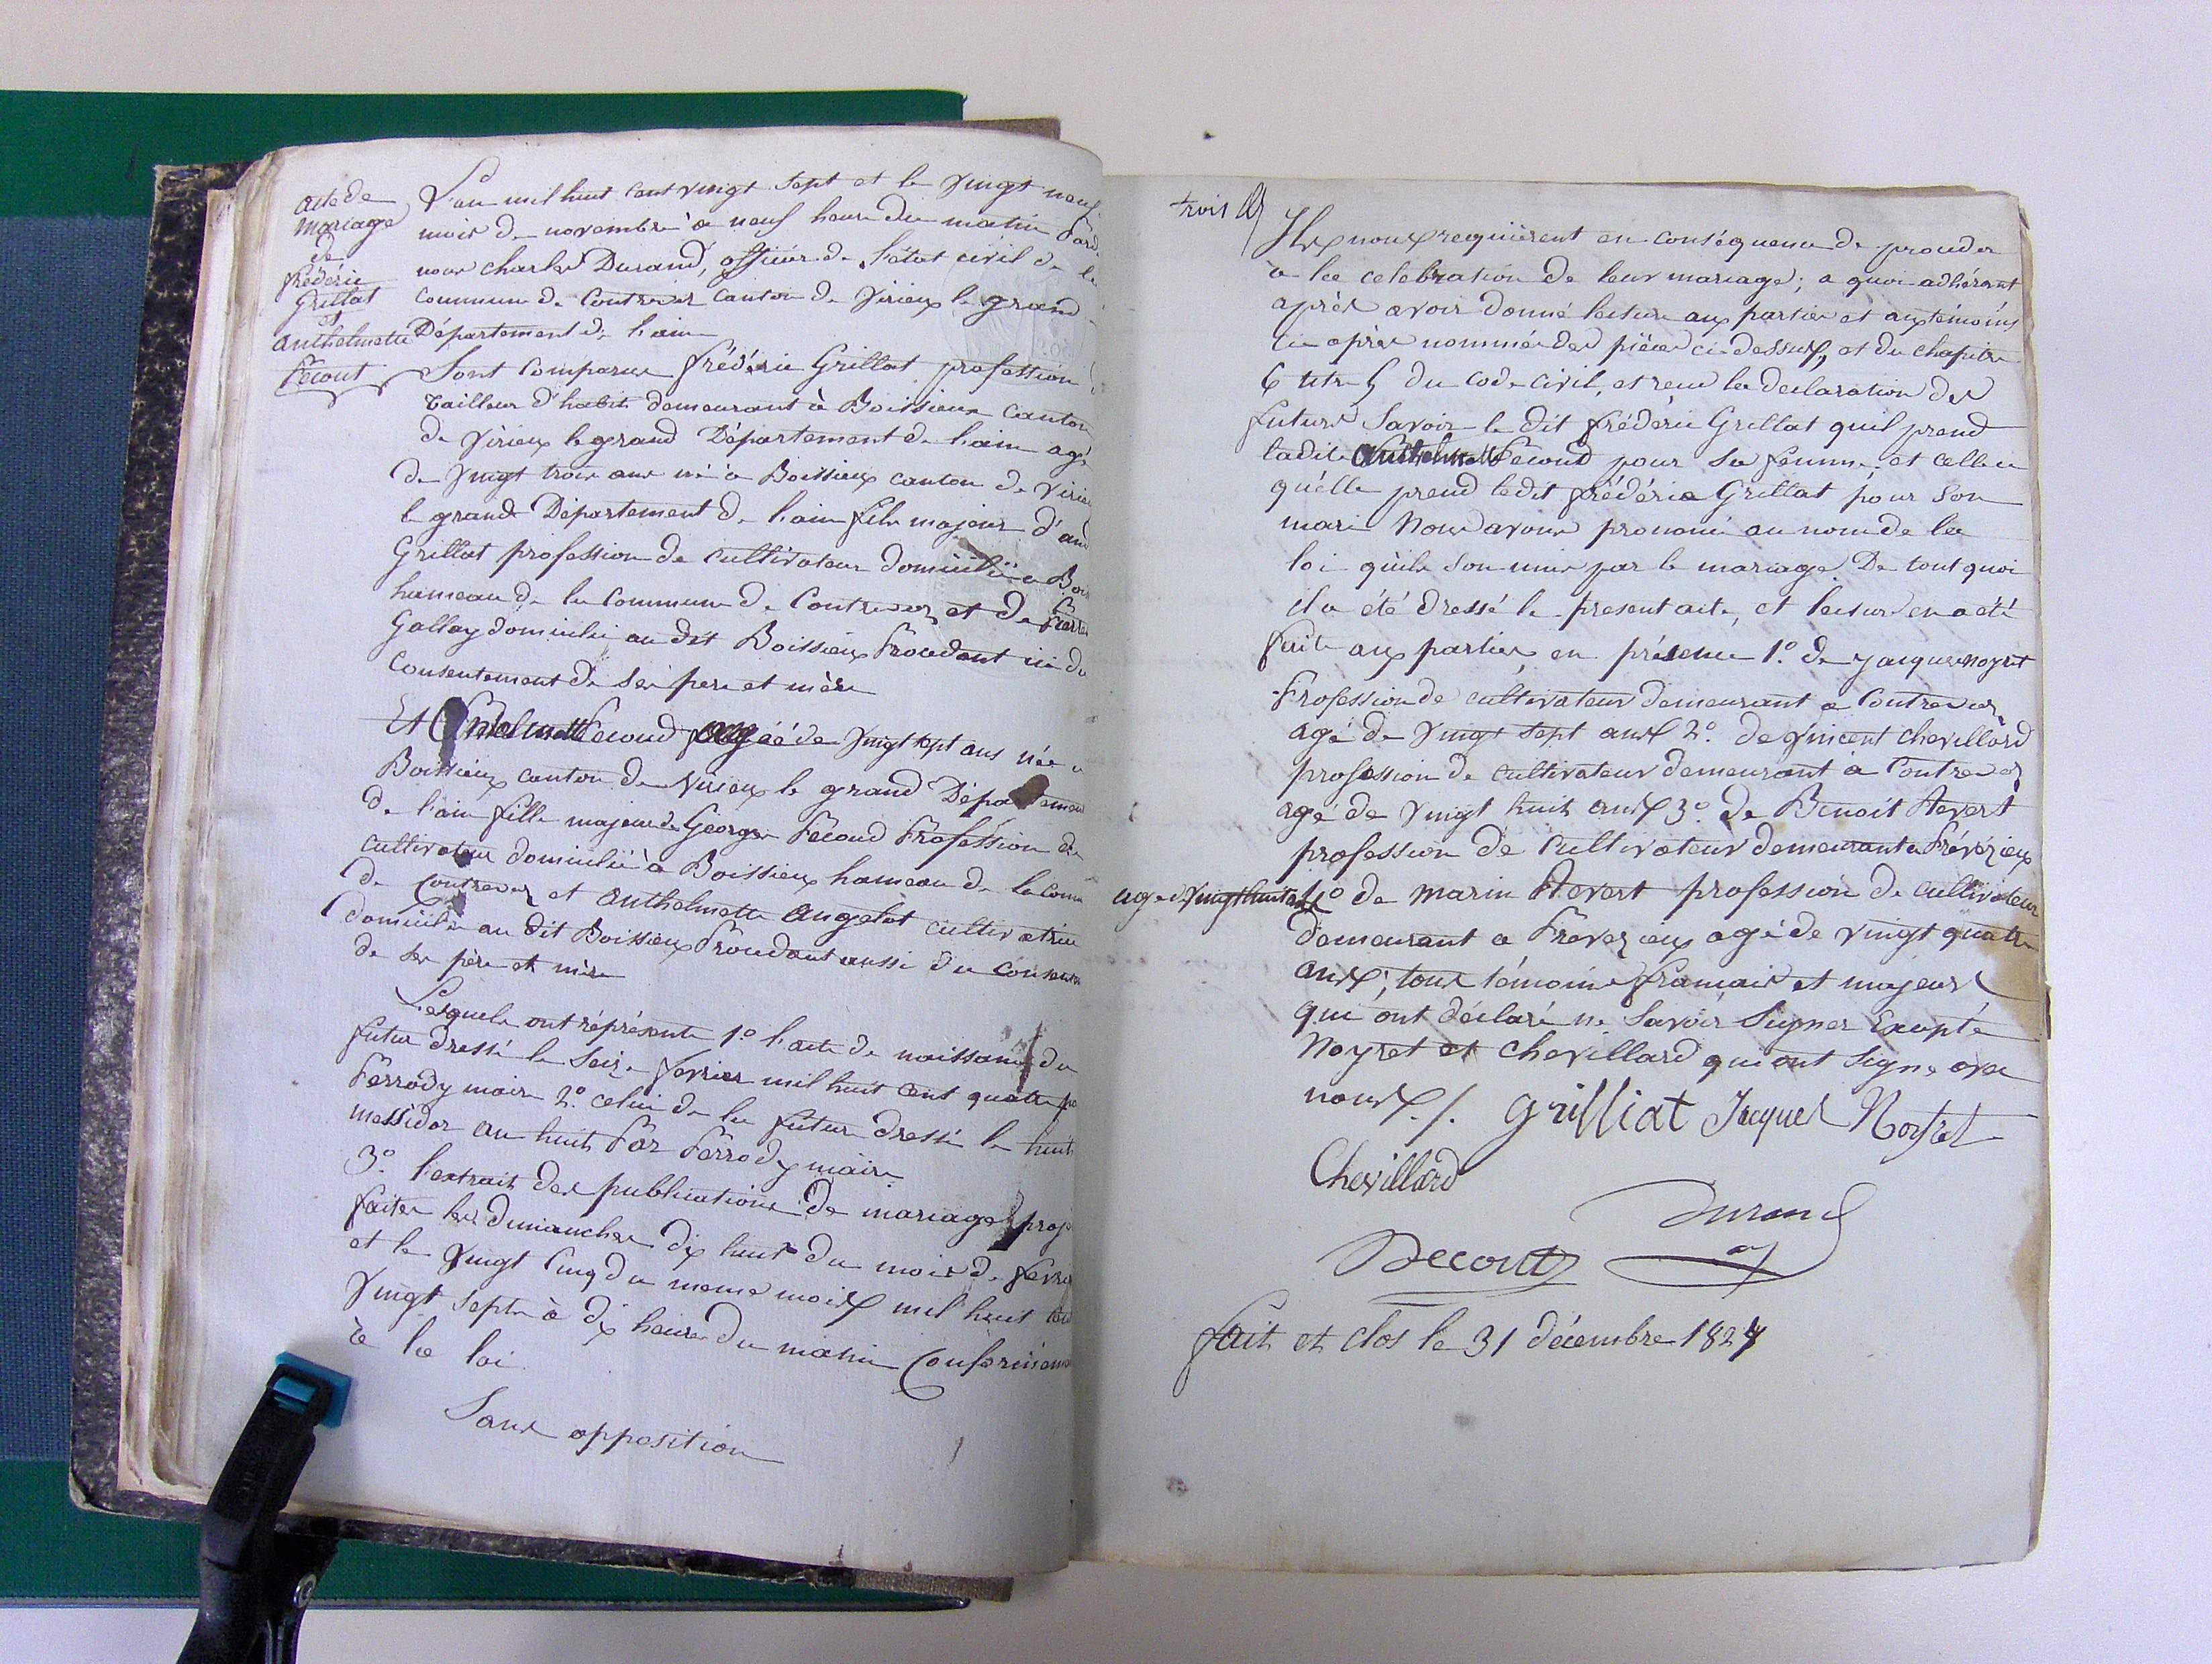 acte de
mariage
de
frédéric
Grillat
et
anthelmette
Pecout
L'an mil huit cent vingt sept et le vingt neuf
mois de novembre à neuf heure du matin Pard
nous charles Durand, officier de l'état civil de la
commune de Contrevoz canton de Virieux le grand
Département de l'ain
Sont Comparus frédéric Grillat profession
tailleur d'habit demeurant à Boissieux canton
de Virieux le grand Département de l'ain agé
de vingt trois ans né à Boissieux canton de Virieu
le grand Département de l'ain fils majeur d'an
Grillat profession de cultivateur domicilié a Boi
hameau de la commune de Contrevoz et de
Gallay domiciliée au dit Boissieux Procedant ici du
Consentement de ses pere et mère
Et Anthelmette Pecoud agéé de vingt sept ans née a
Boissieux canton de Virieux le grand Département
de l'ain fille majeure de George Pecoud Profession de
cultivateur domicilié à Boissieux hameau de la com
de Contrevoz et anthelmette angelot cultivatrice
domiciliée au dit Boissieux Procedant aussi du Consen
de ses père et mère
Lesquels ont réprésenté 1.º l'acte de naissance du
futur dressé le seize fevrier mil huit cent quatre pa
Perrody maire 2.º celui de la future dressé le huit
messidor an huit Par Perrody maire
3.º l'extrait des publications de mariage proj
faites les dimanches dix huit du mois de fevri
et le vingt cinq du meme mois mil huit cen
vingt sept à dix heures du matin Conformeme
à la loi
Sans opposition
trois
Ils nous requièrent en conséquence de proceder
à la celebration de leur mariage; a quoi adhérant
après avoir donné lecture aux parties et aux témoins
cie après nommés des pièces ci dessus, et du chapitre
6 titre 5 du code civil, et reçu la declaration des
futurs Savoir le dit frédéric Grillat quil prend
ladite Anthelmette Pecoud pour sa femme; et celle ci
qu'elle prend ledit frédéric Grillat pour son
mari Nous avons prononcé au nom de la
loi qu'ils son unis par le mariage. De tout quoi
il a été dressé le present acte, et lecture en a été
faite aux parties en présence 1.º de jacque noyret
Profession de cultivateur demeurant a Contrevoz
agé de vingt sept ans 2.º de vincent chevillard
profession de cultivateur demeurant à Contrevoz
agé de vingt huit ans 3.º de Benoit Revert
profession de cultivateur demeurant a Prévezieux
age de vingt huit ans 4.º de marin Revert profession de cultivateur
demeurant a Prevezieux agé de vingt quatre
ans; tous témoins français et majeurs
qui ont déclaré ne Savoir Signer Excepté
Noyret et chevillard qui ont signe avec
nous ./. grilliat Jacques Noyret
Chevillard
Durand
Pecoutz
fait et clos le 31 décembre 1827